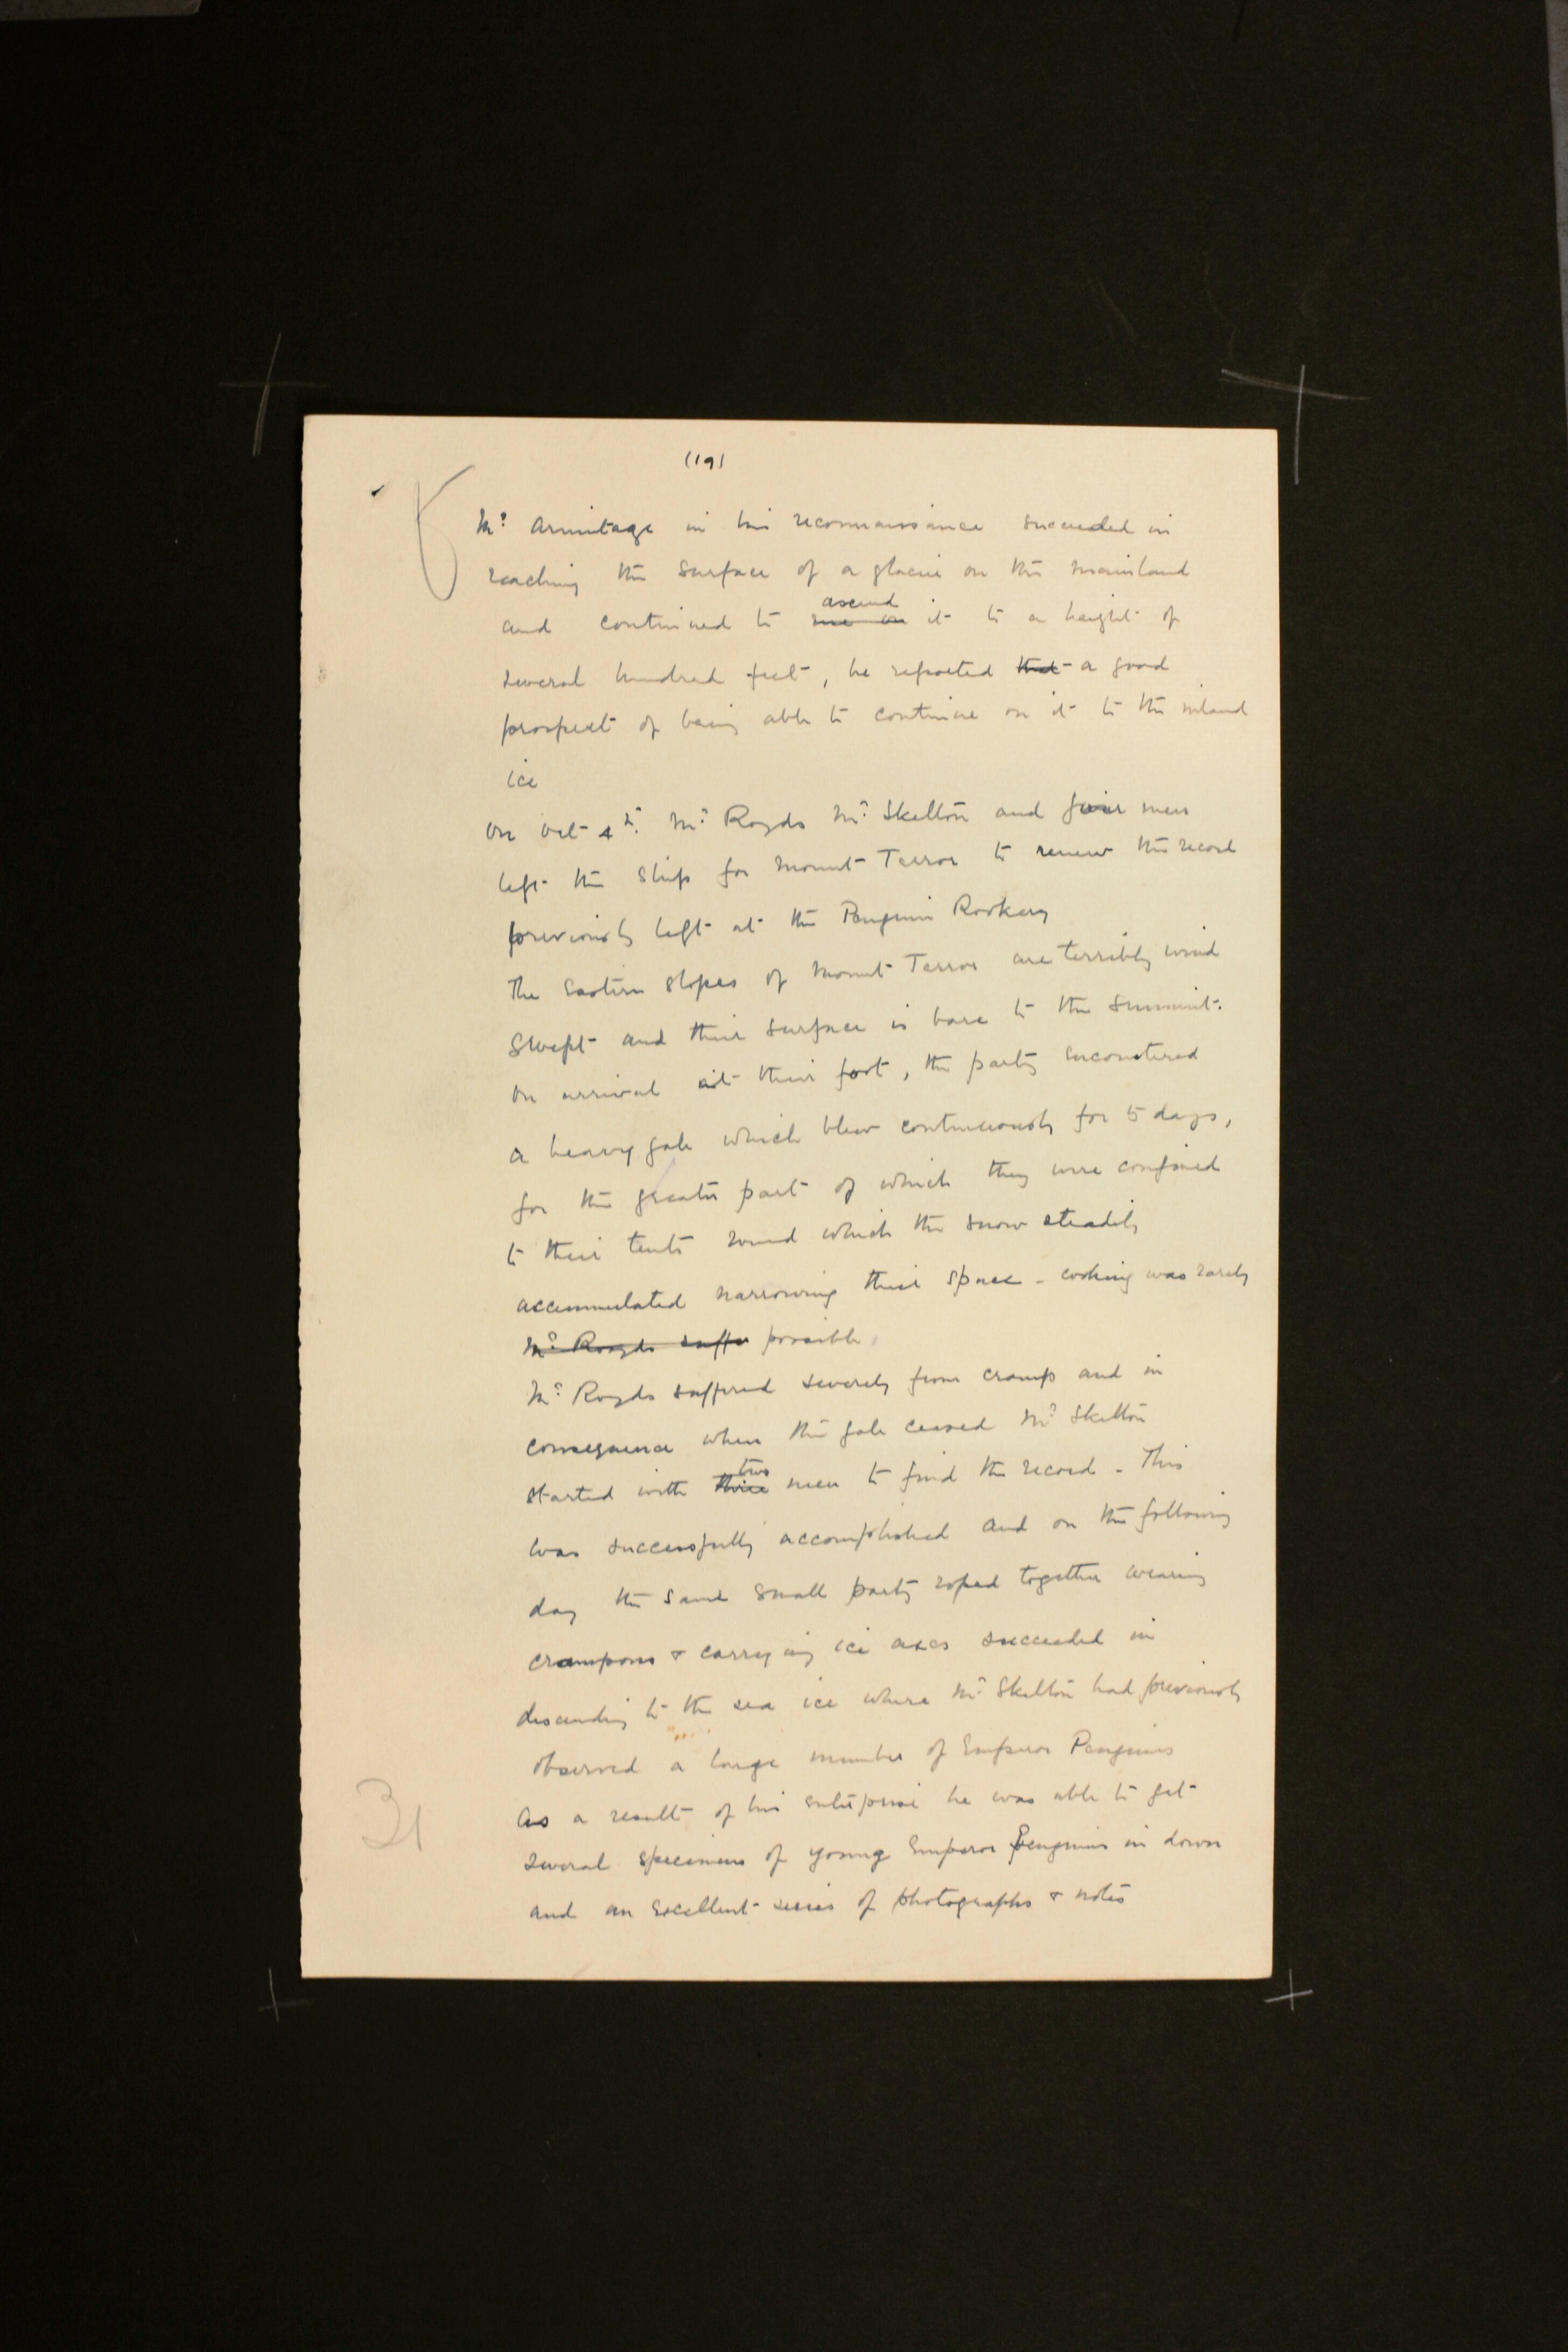 (19)
Mr. Armitage in his reconnaissance succeeded in
reaching the surface of a glacier on the mainland
ascend
and continued to it to a height of
several hundred feet, he reported that a good
prospect of being able to continue on it to the inland
ice
On Oct 4th. Mr. Royds Mr. Skelton and four men
left the ship for Mount Terror to renew the record
previously left at the Penguin Rookery
The Eastern slopes of Mount Terror are terribly wind
swept and their surface is bare to the summit.
On arrival at their foot, the party encountered
a heavy gale which blew continuously for 5 days,
for the greater part of which they were confined
to their tents round which the snow steadily
accumulated narrowing their space - cooking was rarely
Mr. Royds suffe possible.
Mr. Royds suffered severely from cramp and in
consequence when the gale ceased Mr. Skelton
two
started with three men to find the record - This
was successfully accomplished and on the following
day the same small party roped together wearing
crampons & carrying ice axes succeeded in
descending to the sea ice where Mr. Skelton had previously
observed a large number of Emperor Penguins
As a result of his enterprise he was able to get
several specimens of young Emperor Penguins in down
and an excellent series of photographs & notes
31